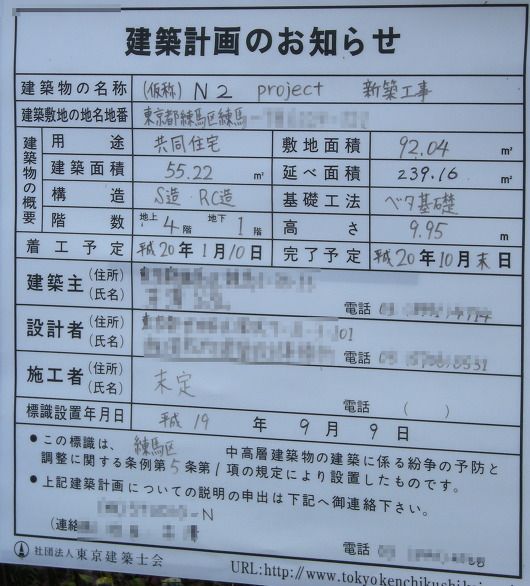 建築計画のお知らせ
建築物の名称 (仮称) N2 project 新築工事
建築敷地の地名地番 東京都練馬区練馬
建築物の概要
用途 共同住宅 敷地面積 92.04 ㎡
建築面積 55.22 ㎡ 延べ面積 239.16 ㎡
構造 S造・RC造 基礎工法 ベタ基礎
階数 地上4階 地下1階 高さ 9.95 m
着工予定 平成20年1月10日 完了予定 平成20年10月末日
建築主 (住所)
(氏名) 電話
設計者 (住所)
(氏名) 電話
施工者 (住所) 未定
(氏名) 電話 ( )
標識設置年月日 平成19年9月9日
●この標識は、練馬区 中高層建築物の建築に係る紛争の予防と
調整に関する条例第5条第1項の規定により設置したものです。
●上記建築計画についての説明の申出は下記へ御連絡下さい。
(連絡
電話
社団法人東京建築士会 URL:http://www.tokyokenchikushikai